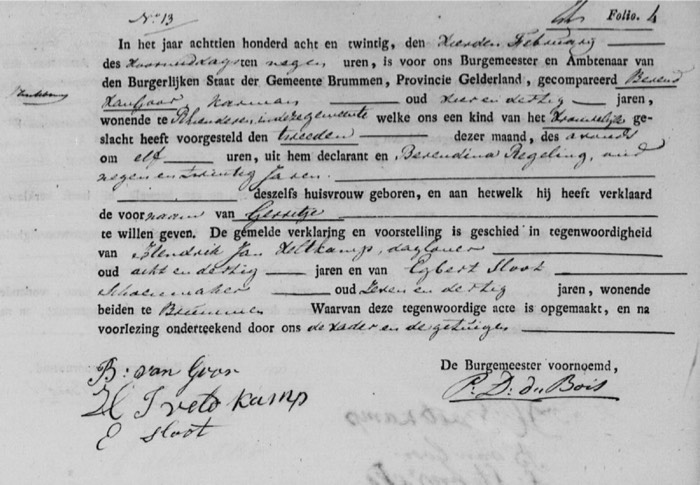 N° 13 Folio. 4
In het jaar achttien honderd acht en twintig, den vierden Februarij
des voormiddags ten negen uren, is voor ons Burgemeester en Ambtenaar van
den Burgerlijken Staat der Gemeente Brummen, Provincie Gelderland, gecompareerd Berend
van Goor oud vier en dertig jaren,
wonende te Rhienderen in deze gemeente welke ons een kind van het vrouwelijk ge-
slacht heeft voorgesteld den tweeden dezer maand, des avonds
om elf uren, uit hem declarant en Berendina Regeling, oud
negen en twintig Jaren
deszelfs huisvrouw geboren, en aan hetwelk hij heeft verklaard
de voornaam van Gerritje
te willen geven. De gemelde verklaring en voorstelling is geschied in tegenwoordigheid
van Hendrik Jan Veltkamp, daglooner
oud acht en dertig jaren en van Egbert Sloot
Schoenmaker oud zeven en dertig jaren, wonende
beiden te Brummen Waarvan deze tegenwoordige acte is opgemaakt, en na
voorlezing onderteekend door ons de vader en de getuigen
De Burgemeester voornoemd,
B: van Goor
H J veltkamp
E sloot
P. D: du Bois